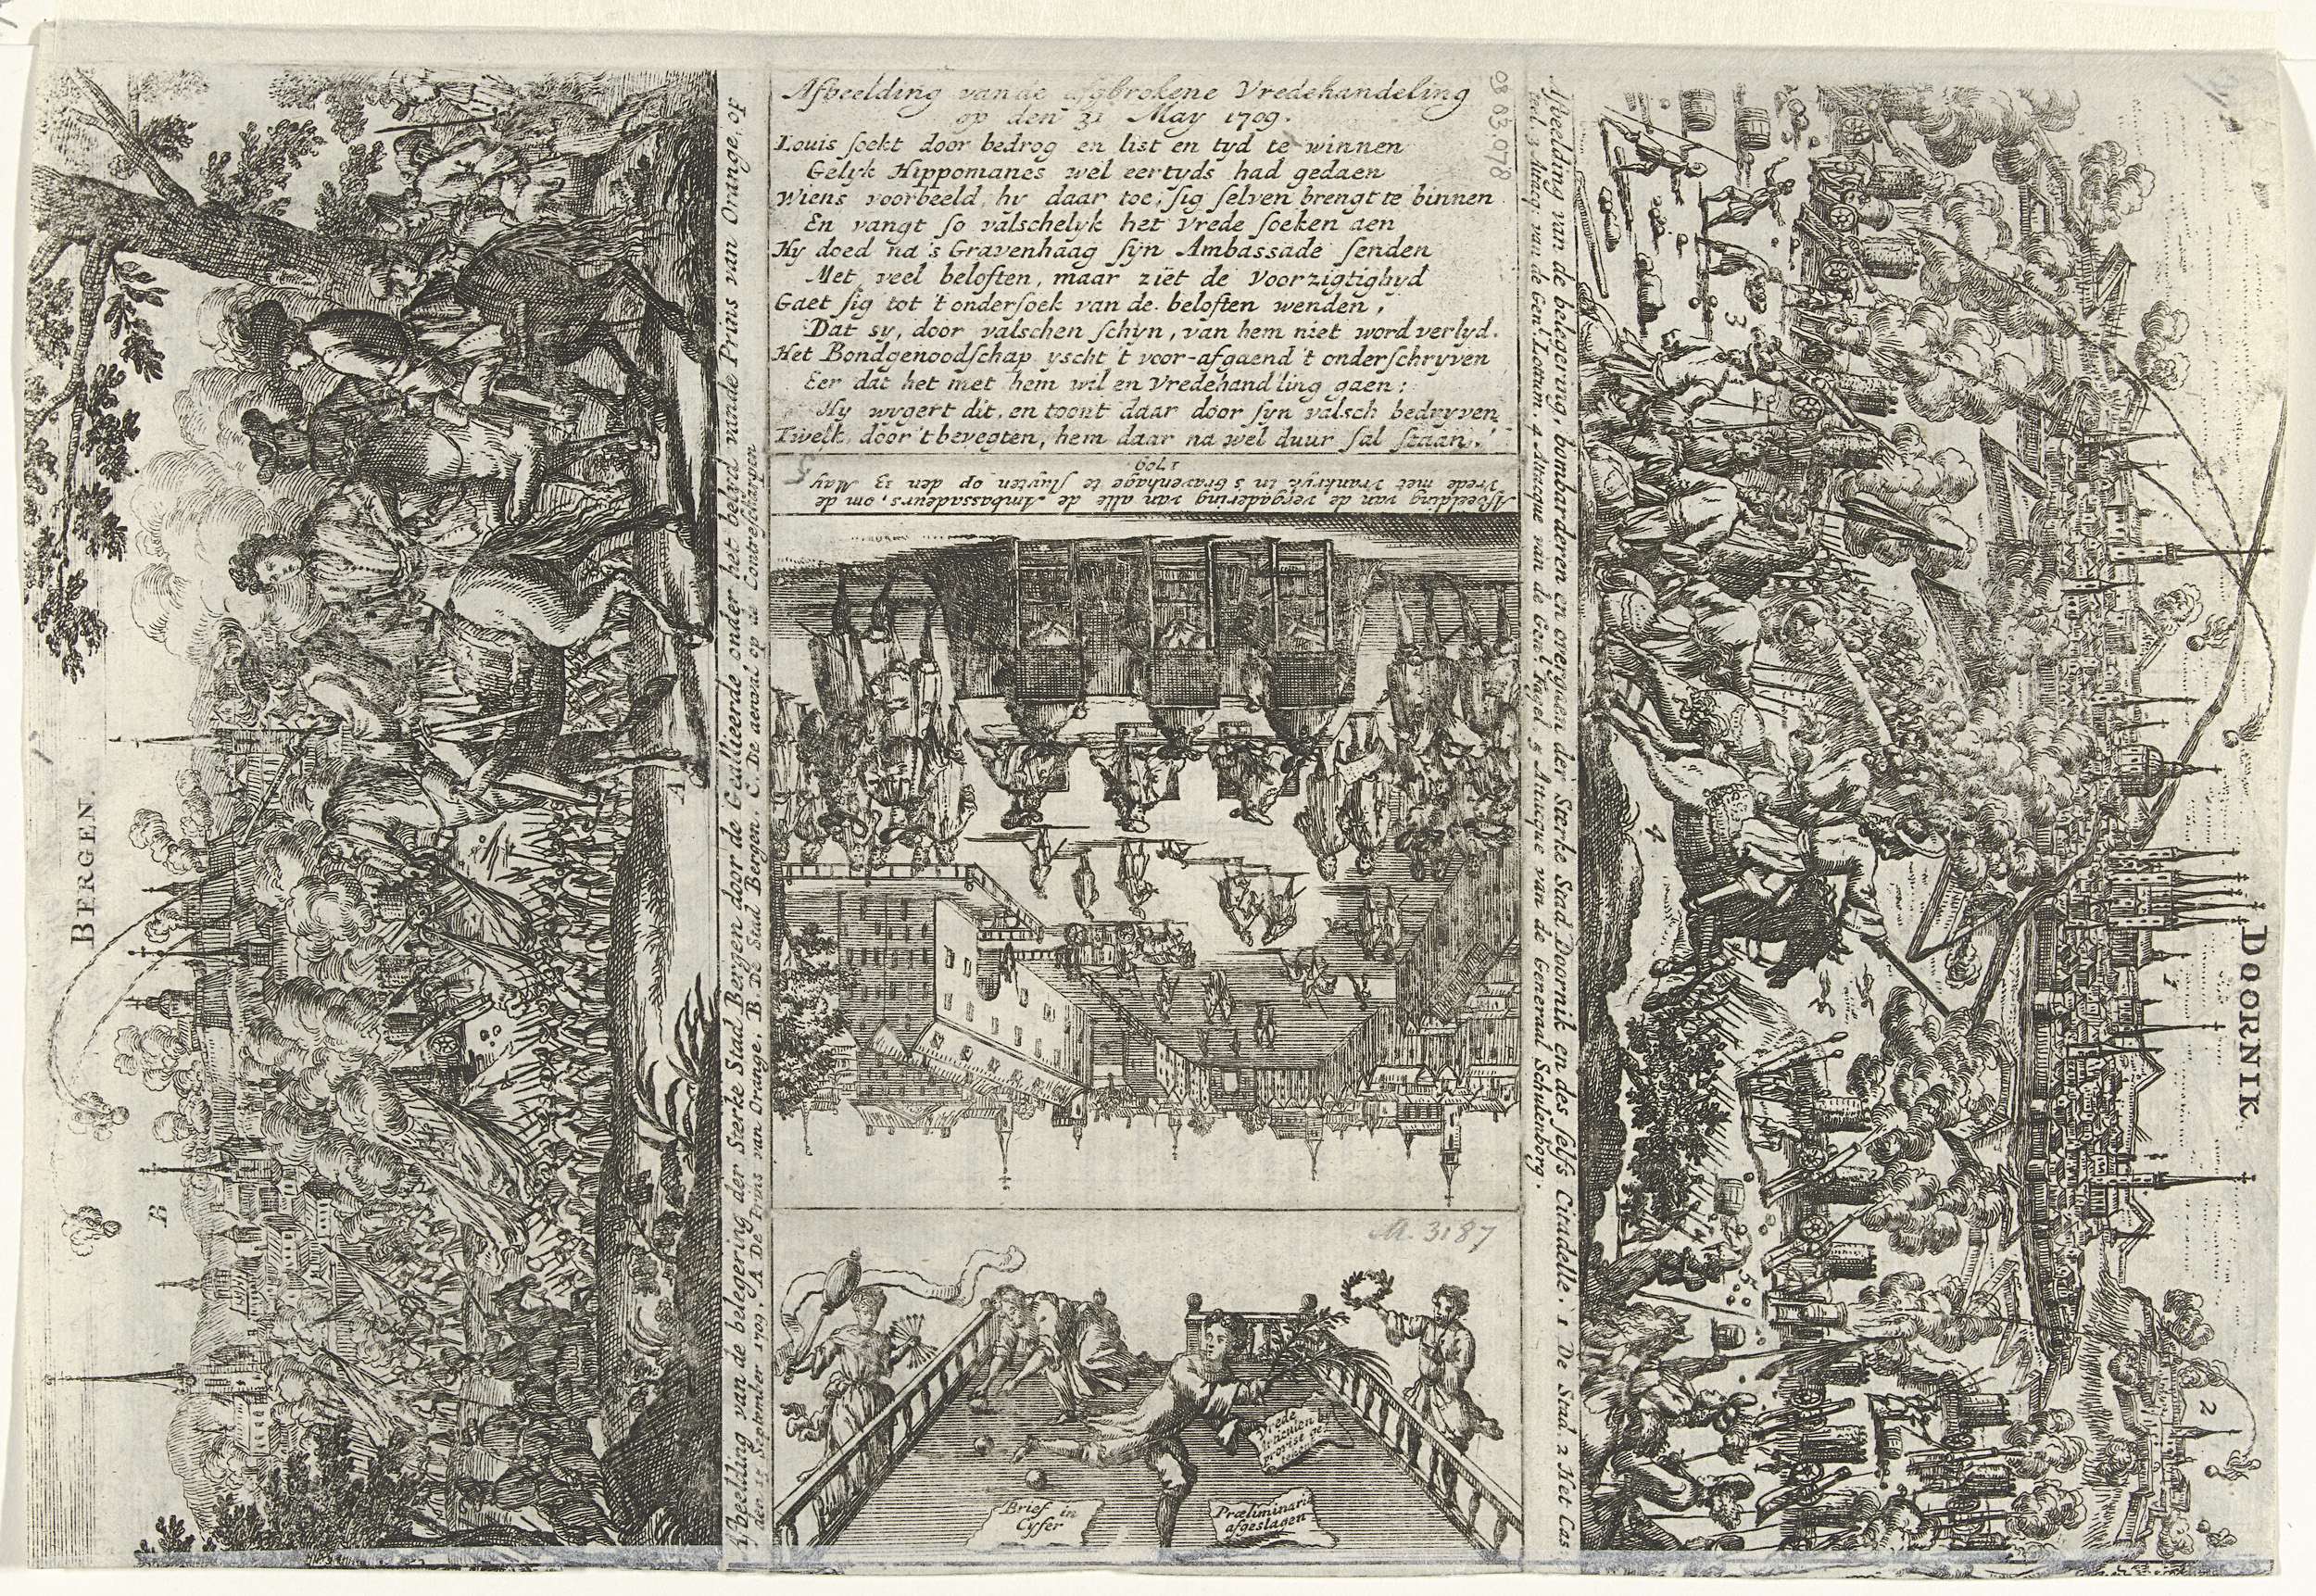 Afbeelding vande afgbrokene Vredehandeling
op den 31 May 1709.
Louis soekt door bedrog en list en tyd te winnen
Gelyk Hippomanes wel eertyds had gedaen
Wiens voorbeeld, hy daar toe, sig selven brengt te binnen
En vangt so valschelyk het Vrede soeken aen
Hy doed na 's Gravenhaag syn Ambassade senden
Met veel beloften, maar ziet de Voorzigtighyd
Gaet sig tot 't ondersoek van de beloften wenden,
Dat sy, door valschen schyn, van hem niet word verlyd.
Het Bondgenoodschap yscht 't voor-afgaend 't onderschryven
Eer dat het met hem wil en Vredehand'ling gaen;
Hy wygert dit, en toont daar door syn valsch bedryven
Twelk door 't bevegten, hem daar na wel duur sal staan.
Afbeelding van de vergadering van alle de Ambassadeurs, om de
Vrede met Vrankryk in 's Gravenhage te sluyten op den 13 May
1709
M. 3187
Vrede
Brief in
Cyfer
Præliminaria
afgeslagen
BERGEN.
A
B
Afbeelding van de belegering der Sterke Stad Bergen door de Geallieerde onder het beleyd vande Prins van Orange, op
den 25 September 1709. A De Prins van Orange. B De Stad Bergen. C. De aenval op de Contrescharpen
DOORNIK.
1
2
3
4
5
Afbeelding van de belegering, bombarderen en overgaen der Sterke Stad Doornik en des selfs Citadelle. 1 De Stad. 2 Het Cas-
teel. 3 Attaq. van de Gen.l Lottum. 4 Attacque van de Gen.l Fagel. 5 Attacque van de Generaal Schulenborg.